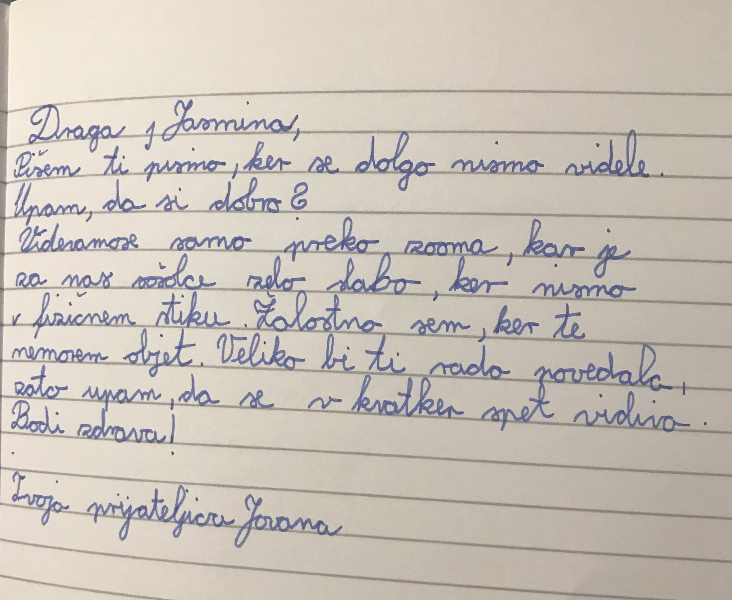 Draga, Jasmina,
Pišem ti pismo, ker se dolgo nismo videle.
Upam, da si dobro?
Videvamose samo preko zooma, kar je
za nas sošolce zelo slabo, ker nismo
v fizičnem stiku. Žalostno sem, ker te
nemorem objet. Veliko bi ti rada povedala,
zato upam, da se v kratker spet vidiva.
Bodi zdrava!
Tvoja prijateljica Jovana